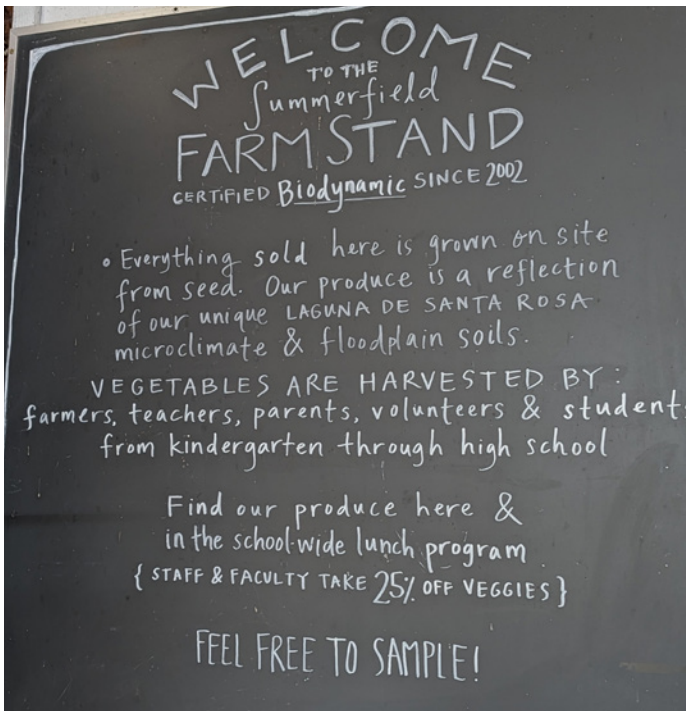 WELCOME
TO THE
Summerfield
FARM STAND
CERTIFIED Biodynamic SINCE 2002
• Everything sold here is grown on site
from seed. Our produce is a reflection
of our unique LAGUNA DE SANTA ROSA
microclimate & floodplain soils.
VEGETABLES ARE HARVESTED BY:
farmers, teachers, parents, volunteers & student
from kindergarten through high school
Find our produce here &
in the school-wide lunch program
{ STAFF & FACULTY TAKE 25% OFF VEGGIES }
FEEL FREE TO SAMPLE!